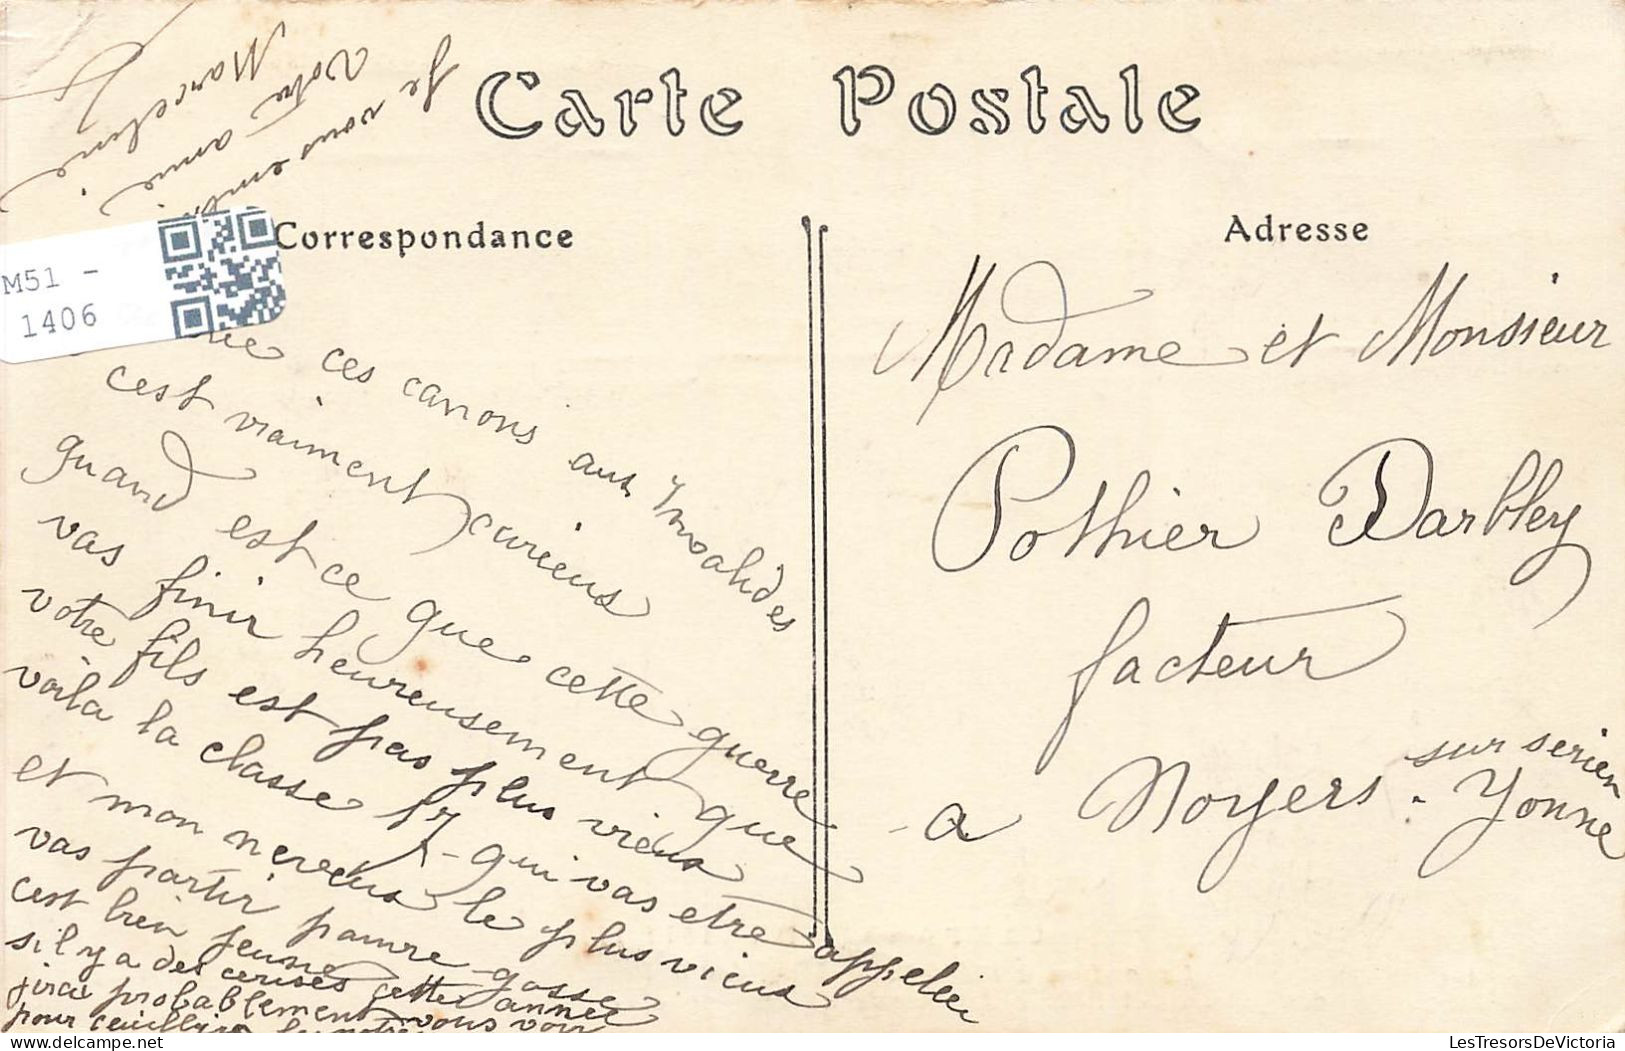 Carte Postale
Correspondance
Adresse
M51 -
1406
ces canons aux Invalides
c'est vraiment curieux
quand est ce que cette guerre
vas finir heureusement que
votre fils est pas plus vieux
voila la classe 17 qui vas etre appelée
et mon neveux le plus vieux
vas partir pauvre gosse
c'est bien jeune
s'il y a des cerises cette année
j'irai probablement vous voir
pour ceuillire
Je vous
Votre amie
Marceline
Madame et Monsieur
Pothier Darbley
facteur
a Noyers sur serien
Yonne
LesTresorsDeVictoria